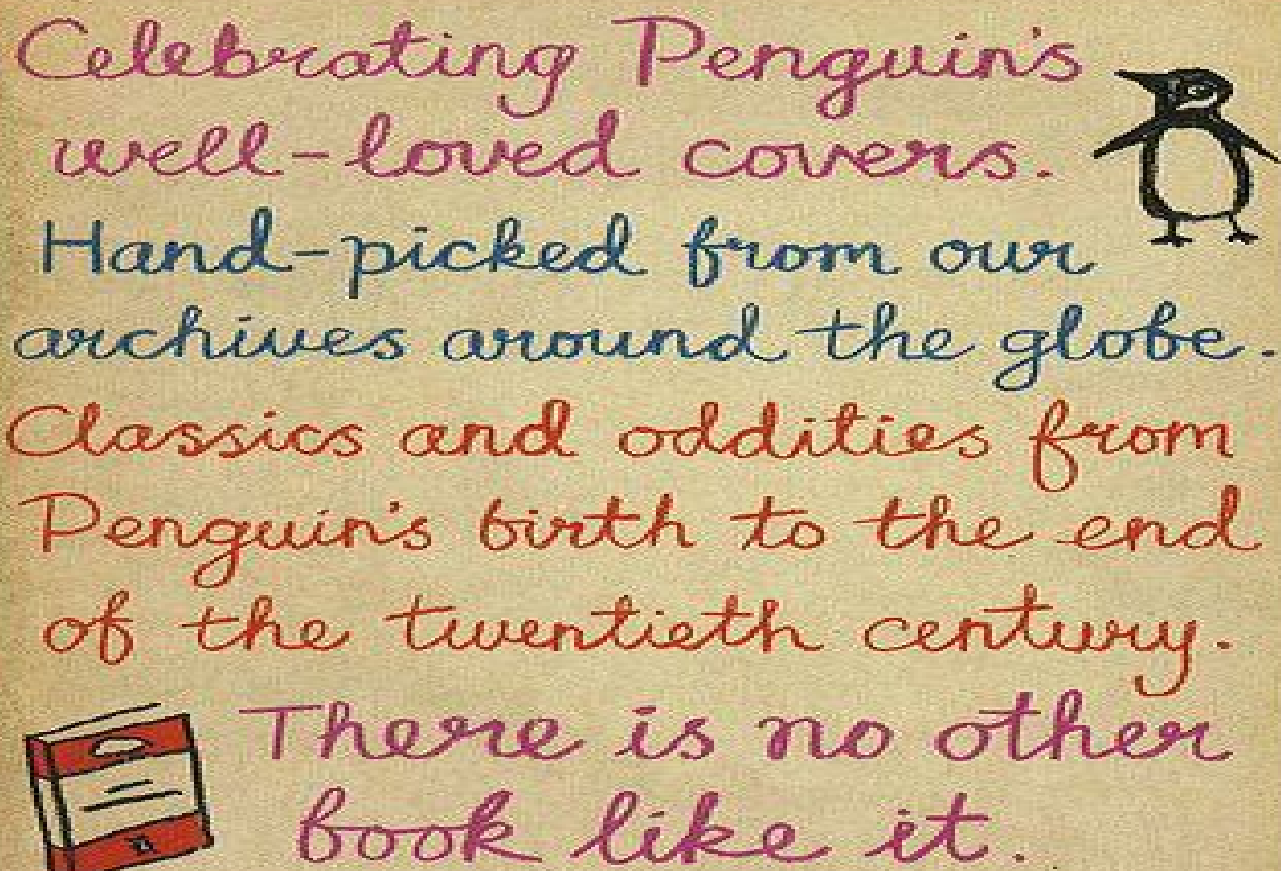 Celebrating Penguin's
well-loved covers.
Hand-picked from our
archives around the globe.
Classics and oddities from
Penguin's birth to the end
of the twentieth century.
There is no other
book like it.